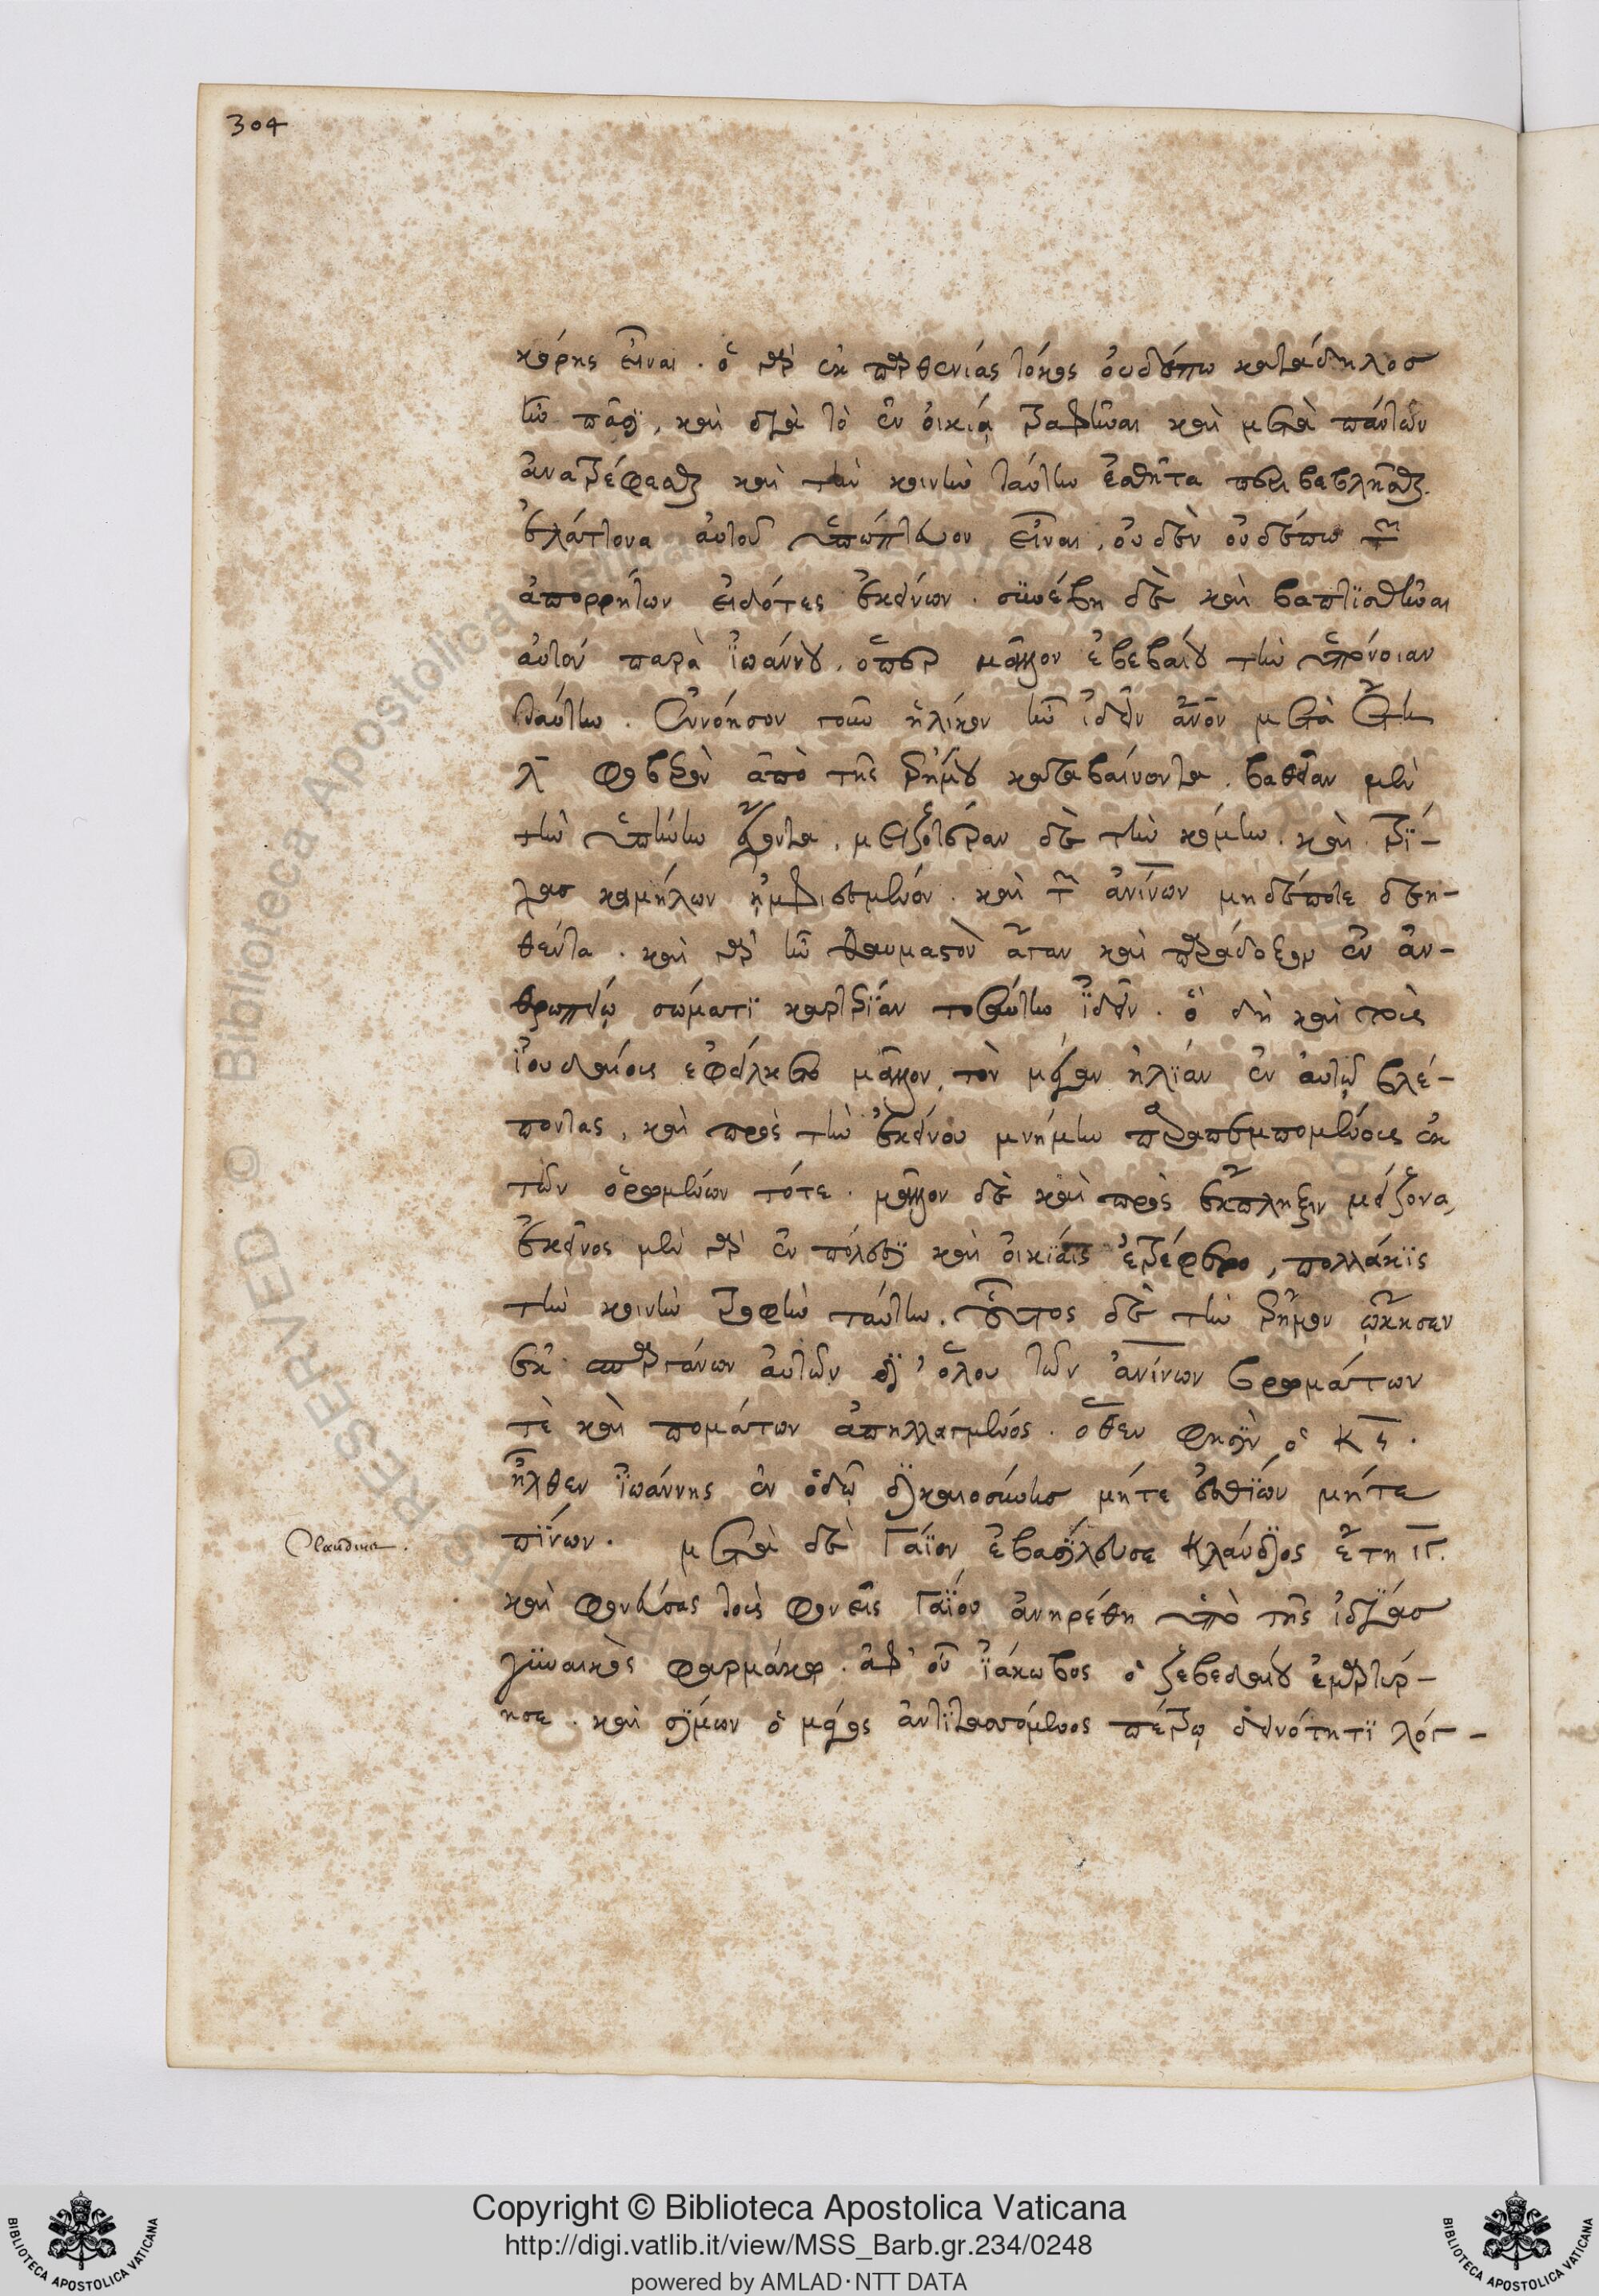 304
κόρης εἶναι. ὁ γὰρ ἐκ παρθενίας τόκος οὐδέπω κατάδηλος
ἦν πᾶσϊ, καὶ διὰ τὸ ἐν οἰκία τραφῆναι καὶ μετὰ πάντων
ἀναστρέφεσθαι καὶ τὴν κοινὴν ταύτην ἐσθῆτα περιβεβλῆσθαι.
ἐλάττονα αὐτοῦ ὑπώπτευον εἶναι, οὐδὲν οὐδέπω τῶν
ἀπορρήτων εἰδότες ἐκείνων. συνέβη δὲ καὶ βαπτϊσθῆναι
αὐτὸν παρὰ ἰωάννου, ὅπερ μᾶλλον ἐβεβαίου τὴν ὑπόνοιαν
ταύτην. ἐννόησον τοίνυν ἡλίκον ἦν ἰδεῖν ἄνον μετὰ ἔτη
λ̅ ἀπὸ τῆς ἐρήμου καταβαίνοντα. βαθεῖαν μὲν
τὴν ὑπήνην ἔχοντα, μειζοτέραν δὲ τὴν κόμην. καὶ τρί-
χας καμήλων ἠμφιεσμένον. καὶ τῶν ἀνίνων μηδέποτε δεη-
θέντα. καὶ γὰρ ἦν θαυμαστὸν ἄγαν καὶ παράδοξον ἐν ἀν-
θρωπείῳ σώματϊ καρτερίαν τοσαύτην ἰδεῖν. ὁ δὴ καὶ τοὺς
ἰουδαίους ἐφείλκετο μᾶλλον, τὸν μέγαν ἠλίαν ἐν αὐτῷ βλέ-
ποντας, καὶ πρὸς τὴν ἐκείνου μνήμην παραπεμπομένους ἐκ
τῶν ὁρωμένων τότε. μᾶλλον δὲ καὶ πρὸς ἔκπληξιν μείζονα,
ἐκεῖνος μὲν γὰρ ἐν πόλεσϊ καὶ οἰκίαις ἐτρέφετο, πολλάκϊς
τὴν κοινὴν τροφὴν ταύτην. οὗτος δὲ τὴν ἔρημον ᾤκησεν
ἐκ σπαργάνων αὐτῶν δϊ' ὅλου τῶν ἀνίνων βρωμάτων
τὲ καὶ πομάτων ἀπηλλαγμένος. ὅθεν φησὶν ὁ κς̅.
ἦλθεν ἰωάννης ἐν ὁδῷ δικαιοσύνης μήτε ἐσθίων μήτε
Claudius.
πίνων. μετὰ δὲ Γάϊον ἐβασίλευσε Κλαύδϊος ἔτη ιγ̅.
καὶ φονεύσας τοὺς φονεῖς Γαΐου ἀνηρέθη ὑπὸ τῆς ἰδίας
γυναικὸς φαρμάκῳ. ἀφ' οὗ ἰάκωβος ὁ ζεβεδαίου ἐμαρτύρ-
ησε. καὶ σίμων ὁ μάγος ἀντιτασσόμενος πέτρῳ δεινότητϊ λόγ-
Copyright © Biblioteca Apostolica Vaticana
http://digi.vatlib.it/view/MSS_Barb.gr.234/0248
powered by AMLAD·NTT DATA